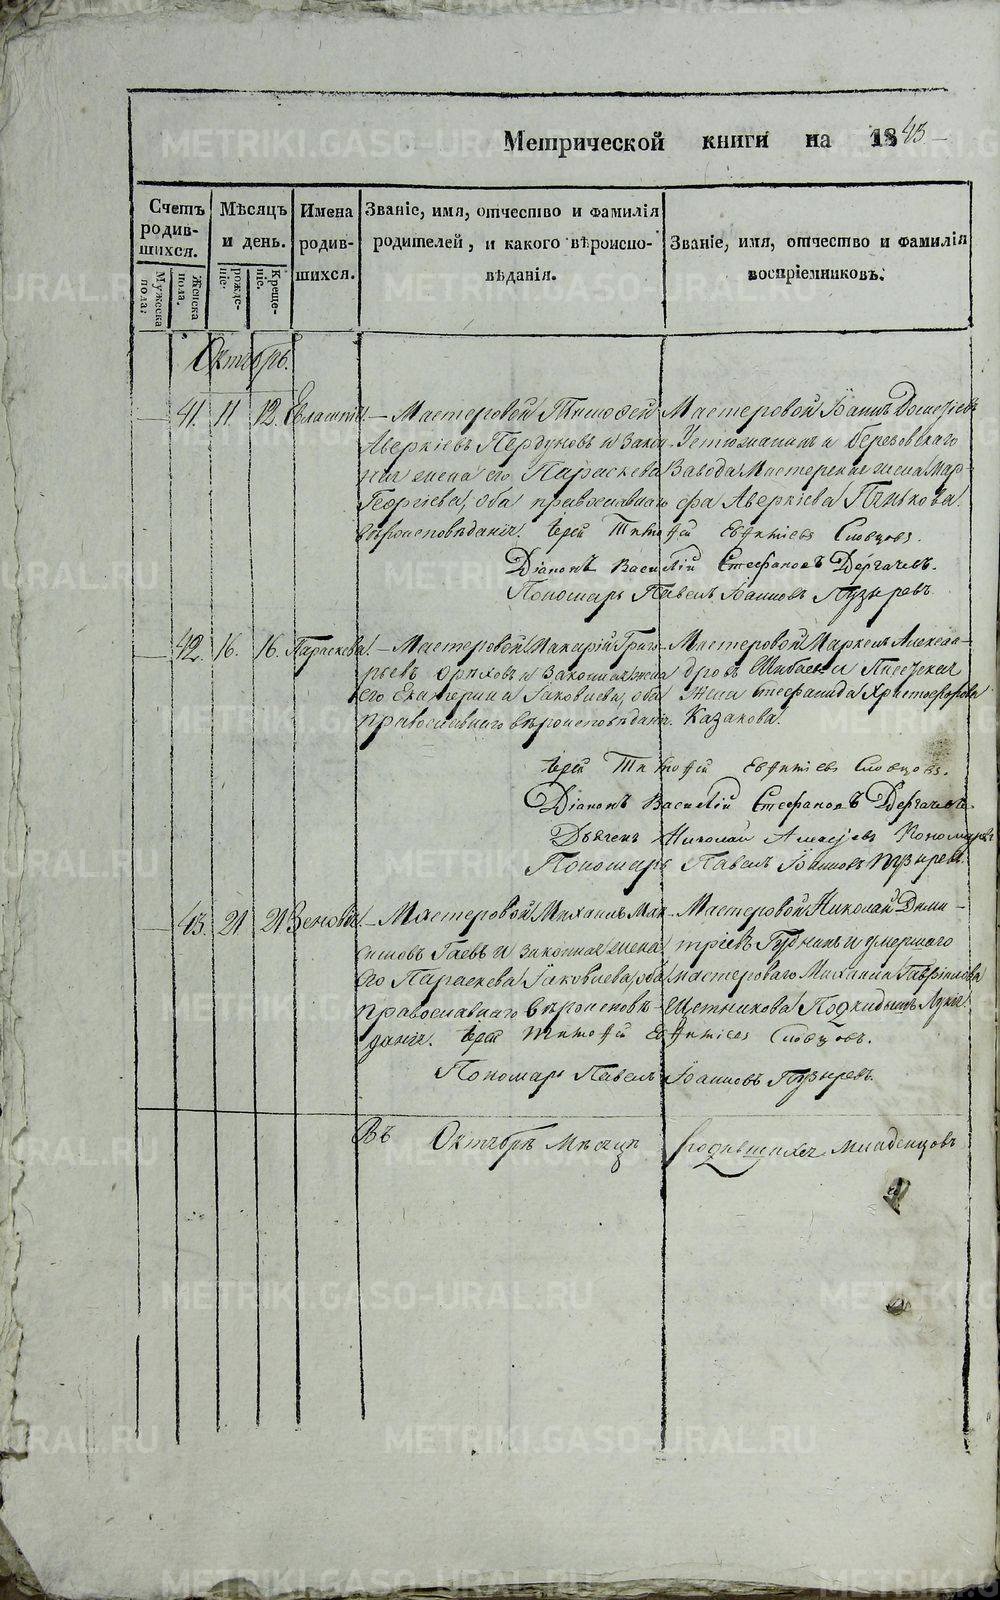 Метрической книги на 1843
Счетъ родив-шихся.
Мужеска пола.
Женска пола.
Мѣсяцъ и день.
рожде-ніе.
Креще-ніе.
Имена родив-шихся.
Званіе, имя, отчество и фамилія
родителей, и какого вѣроиспо-
вѣданія.
Званіе, имя, отчество и фамилія
воспріемниковъ.
Октябрь.
41. 11 12. Мастеровой Тимофей
Аверкіевъ и закон-
ная жена его Параскева
Георгіева, оба православнаго
вѣроисповѣданія.
Мастеровой Іоаннъ
и Березовскаго
Завода Мастерская жена Мар-
фа Аверкіева Пѣнькова.
Іерей Тимофей Словцовъ.
Діаконъ Василій Стефановъ Дергачевъ.
Пономарь Павелъ Іоанновъ Пузыревъ.
42. 16. 16. Параскева. Мастеровой Макарій Григо-
рьевъ Орѣховъ и законная жена
его Екатерина Іаковлева, оба
православнаго вѣроисповѣданія.
Мастеровой Маркелъ Алексан-
дровъ и
жена Стефанида Христофорова
Казакова.
Іерей Тимофей Словцовъ.
Діаконъ Василій Стефановъ Дергачевъ.
Дьячекъ Николай Пономаревъ
Пономарь Павелъ Іоанновъ Пузыревъ.
43. 21 21 Мастеровой Михаилъ Мак-
симовъ Гаевъ и законная жена
его Параскева Іаковлева, оба
православнаго вѣроисповѣ-
данія.
Мастеровой Николай Дими-
тріевъ Губинъ и умершаго
мастероваго Михаила Гавріилова
Щетникова
Іерей Тимофей Словцовъ.
Пономарь Павелъ Іоанновъ Пузыревъ.
Въ Октябрѣ мѣсяцѣ родившихся младенцовъ
METRIKI.GASO-URAL.RU